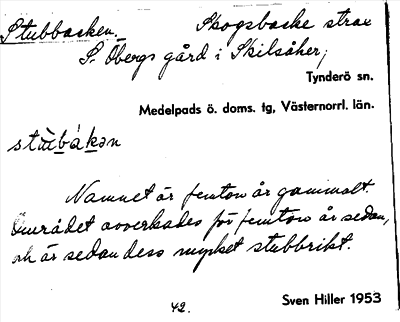 Stubbacken. Skogsbacke strax
P. Öbergs gård i Skilsåker;
Tynderö sn.
Medelpads ö. doms. tg, Västernorrl. län.
Namnet är femton år gammalt.
Området avverkades för femton år sedan,
och är sedan dess mycket stubbrikt.
42.
Sven Hiller 1953